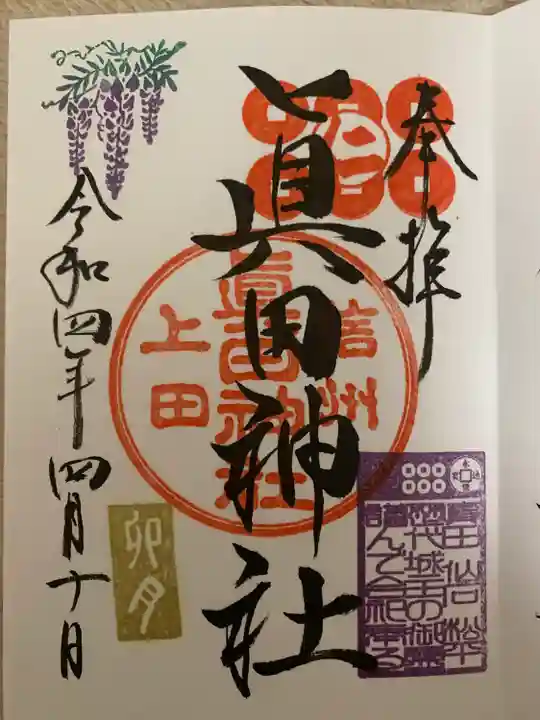 奉拝
眞田神社
信州
眞田神社
上田
真田 仙石 松平
歴代城主の御霊
謹んで合祀奉る
令和四年四月十日
卯月